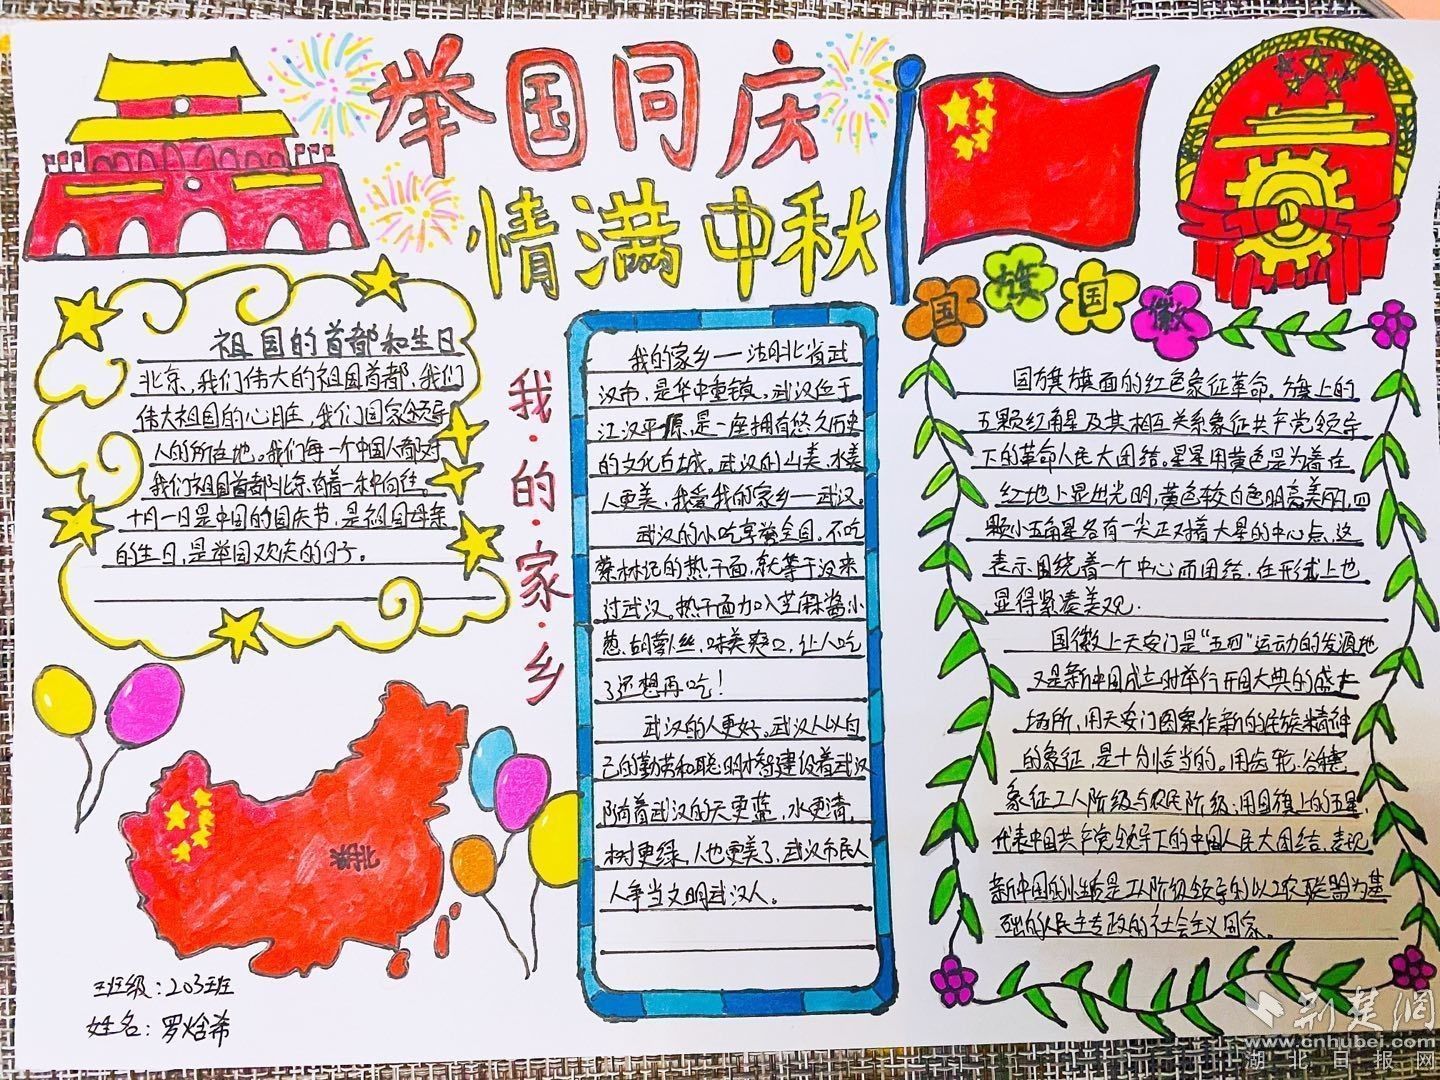 举国同庆
情满中秋
国旗国徽
祖国的首都和生日
北京，我们伟大的祖国首都，我们
伟大祖国的心脏，我们国家领导
人的所在地。我们每一个中国人都对
我们祖国首都北京有着一种向往。
十月一日是中国的国庆节，是祖国母亲
的生日，是举国欢庆的日子。
我·的·家·乡
我的家乡——湖北省武
汉市，是华中重镇。武汉位于
江汉平原，是一座拥有悠久历史
的文化古城。武汉的山美、水美
人更美，我爱我的家乡—武汉。
武汉的小吃享誉全国，不吃
蔡林记的热干面，就等于没来
过武汉。热干面加入芝麻酱小
葱、胡萝丝，味美爽口，让人吃
了还想再吃！
武汉的人更好。武汉人以自
己的勤劳和聪明才智建设着武汉
随着武汉的天更蓝，水更清，
树更绿，人也更美了，武汉市民人
人争当文明武汉人。
国旗旗面的红色象征革命。旗上的
五颗红角星及其相互关系象征共产党领导
下的革命人民大团结。星星用黄色是为着在
红地上显出光明，黄色较白色明亮美丽，四
颗小五角星各有一尖正对着大星的中心点，这
表示围绕着一个中心而团结，在形式上也
显得紧凑美观.
国徽上天安门是“五四”运动的发源地
又是新中国成立时举行开国大典的盛大
场所，用天安门图案作新的民族精神
的象征，是十分恰当的。用齿轮、谷穗
象征工人阶级与农民阶级；用国旗上的五星
代表中国共产党领导下的中国人民大团结，表现
新中国的性质是工人阶级领导的以工农联盟为基
础的人民主专政的社会主义国家。
班级：203班
姓名：罗焓希
荆楚网
www.cnhubei.com
湖北日报网